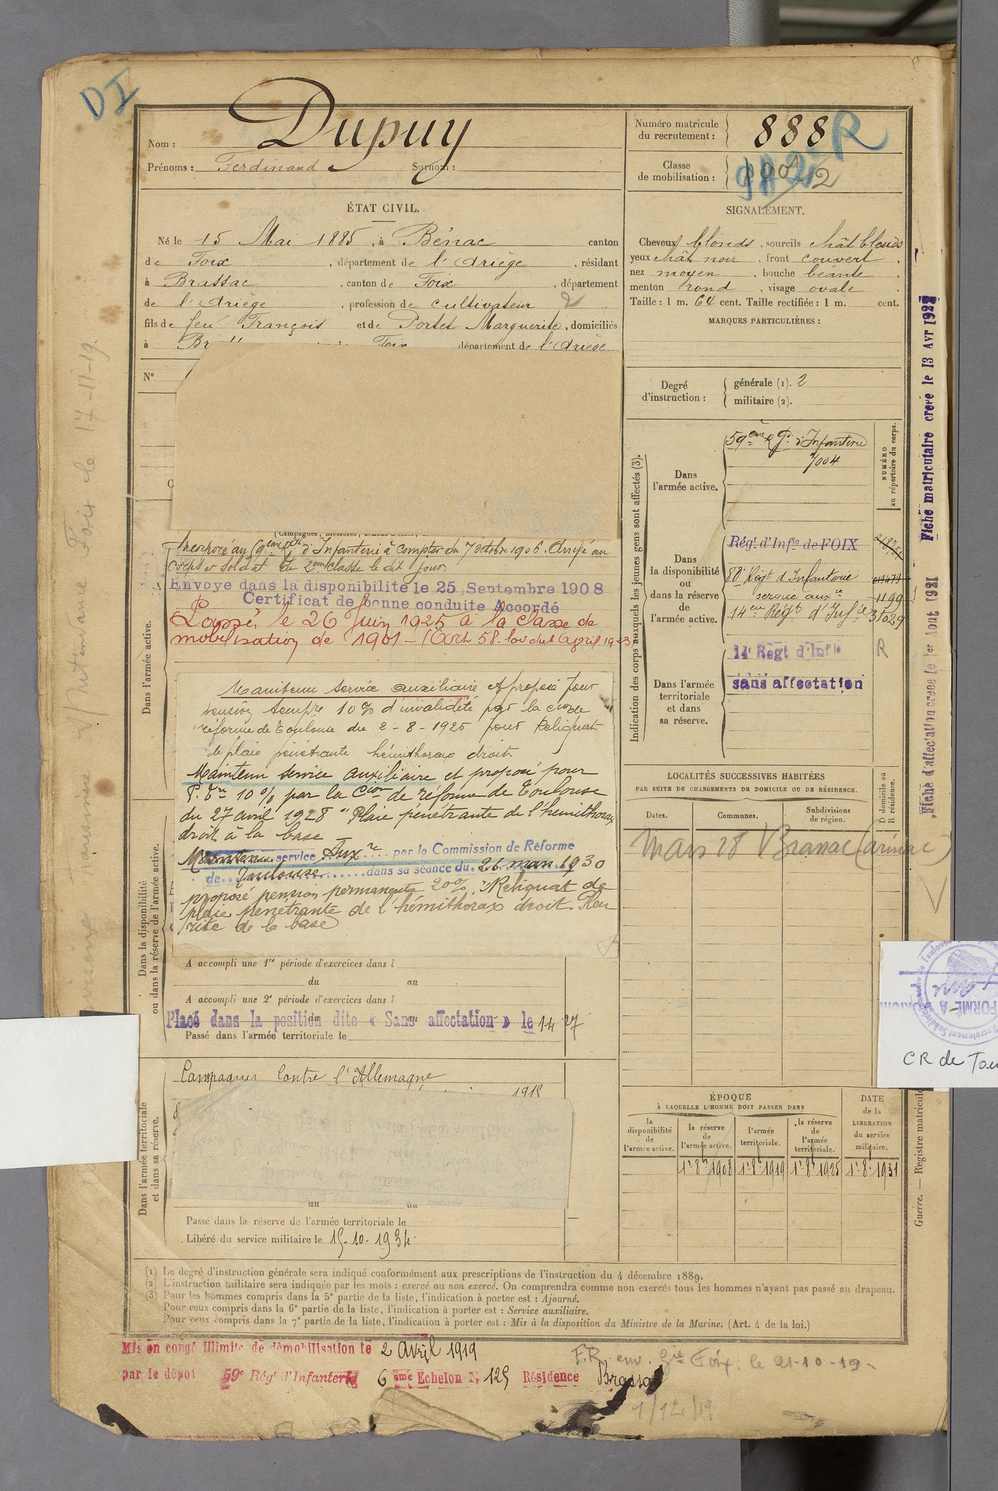 DI
Nom : Dupuy
Prénoms : Ferdinand Surnom :
Numéro matricule du recrutement : 888 R
Classe de mobilisation : 2
ÉTAT CIVIL.
Né le 15 Mai 1885, à Bénac canton
de Foix, département de l'Ariège, résidant
à Brassac, canton de Foix, département
de l'Ariège, profession de cultivateur 2
fils de feu François et de Portet Marguerite, domiciliés
à département de l'Ariège
N°
SIGNALEMENT.
Cheveux blonds, sourcils chât blonds
yeux chât noir, front couvert,
nez moyen, bouche béante
menton rond, visage ovale.
Taille : 1 m. 64 cent. Taille rectifiée : 1 m. cent.
MARQUES PARTICULIÈRES :
Degré d'instruction : générale (1). 2
militaire (2).
Indication des corps auxquels les jeunes gens sont affectés (3).
NUMÉRO au répertoire du corps.
Dans l'armée active.
59ème Rgt d'Infanterie
7004
Dans la disponibilité ou dans la réserve de l'armée active.
Régt d'Infie de FOIX
88e Régt d'Infanterie
service auxre 1199
14eme Régt d'Infie 31029
Dans l'armée territoriale et dans sa réserve.
14e Régt d'Infie R
sans affectation
Dans l'armée active.
à compter du 7 octobre 1906. Arrivé au
corps et soldat de 2eme classe le dit jour
Envoyé dans la disponibilité le 25 Septembre 1908
Certificat de bonne conduite Accordé
Passé, le 26 Juin 1925 à la classe de
mobilisation de 1901 - (Art 58. loi du 1 April 1923)
Maintenu service auxiliaire et proposé pour
pension tempre 10% d'invalidité par la cion de
réforme de Toulouse du 2-8-1925 pour Reliquat
de plaie pénétrante hémithorax droit
Maintenu service auxiliaire et proposé pour
P. tre 10% par la Cion de réforme de Toulouse
du 27 avril 1928 "Plaie pénétrante de l'hémithorax
droit à la base
Maintenu service Auxre par la Commission de Réforme
de Toulouse dans sa séance du 26 mars 1930
proposé pension permanente 20% : Reliquat de
plaie pénétrante de l'hémithorax droit. Pleu
rite de la base
Dans la disponibilité ou dans la réserve de l'armée active.
A accompli une 1re période d'exercices dans l
du au
A accompli une 2e période d'exercices dans l
du au
Placé dans la position dite « Sans affectation » le 14 27
Passé dans l'armée territoriale le
Dans l'armée territoriale et dans sa réserve.
Campagnes Contre l'Allemagne
au
Passé dans la réserve de l'armée territoriale le
Libéré du service militaire le 15-10-1934
LOCALITÉS SUCCESSIVES HABITÉES
PAR SUITE DE CHANGEMENTS DE DOMICILE OU DE RÉSIDENCE.
Dates. Communes. Subdivisions de région. D domicile ou R résidence.
Mars 28
ÉPOQUE
À LAQUELLE L'HOMME DOIT PASSER DANS
la disponibilité de l'armée active.
la réserve de l'armée active.
l'armée territoriale.
la réserve de l'armée territoriale.
DATE de la LIBÉRATION du service militaire.
1r 8bre 1908 1r 8bre 1919 1r 8bre 1925 1r-8-1931
(1) Le degré d'instruction générale sera indiqué conformément aux prescriptions de l'instruction du 4 décembre 1889.
(2) L'instruction militaire sera indiquée par les mots : exercé ou non exercé. On comprendra comme non exercés tous les hommes n'ayant pas passé au drapeau.
(3) Pour les hommes compris dans la 5e partie de la liste, l'indication à porter est : Ajourné.
Pour ceux compris dans la 6e partie de la liste, l'indication à porter est : Service auxiliaire.
Pour ceux compris dans la 7e partie de la liste, l'indication à porter est : Mis à la disposition du Ministre de la Marine. (Art. 4 de la loi.)
Mis en congé illimité de démobilisation le 2 Avril 1919
par le dépôt 59e Rég. d'Infanterie 6 ème Echelon N° 125 Résidence Brassac
F.R. env. Gie Foix. le 21-10-19-
1/12/19
Foix le 17-11-19.
Fiche matriculaire créée le 13 Avr 1928
Fiche d'affectation créée le 1er Aout 1921
Guerre. — Registre matricule
CR de Tou